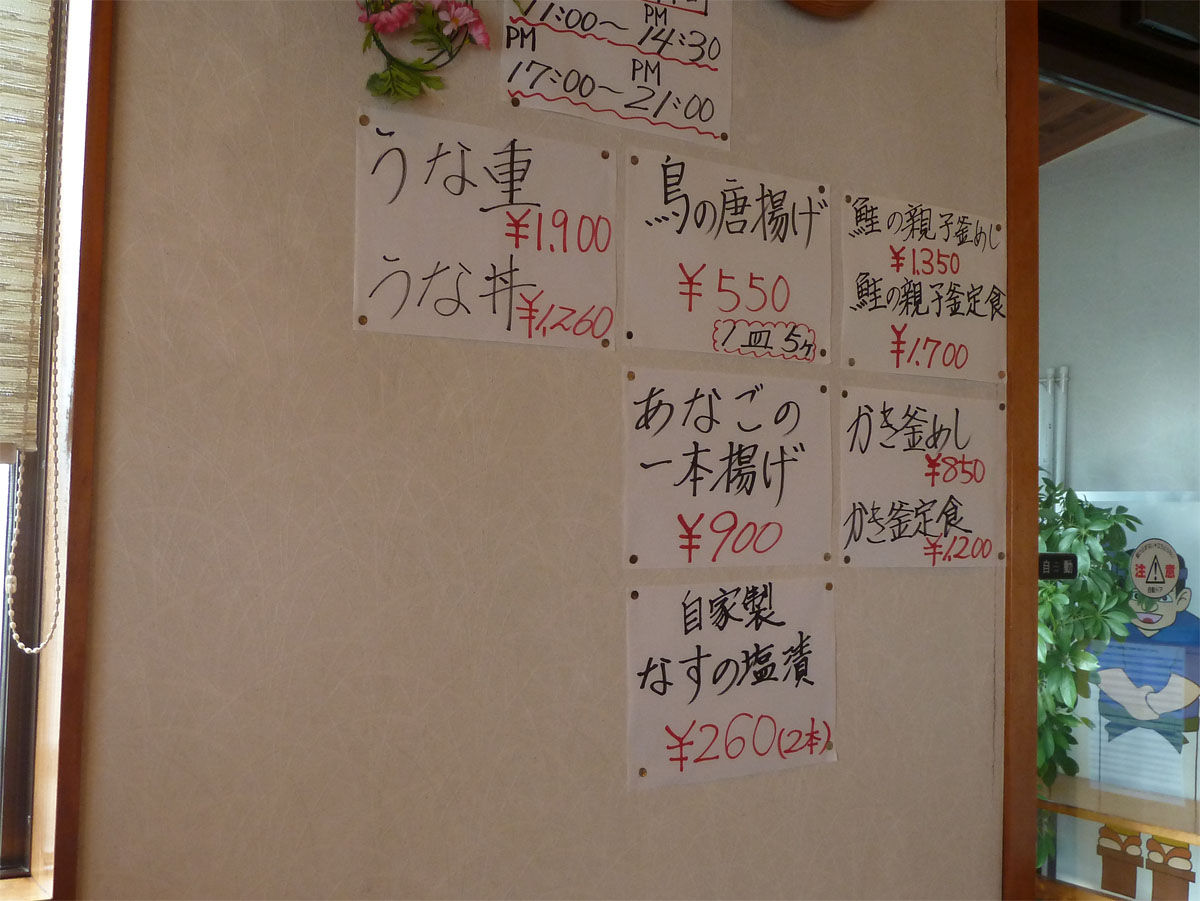 11:00～14:30
PM
PM
17:00～21:00
PM
うな重
¥1.900
うな丼
¥1,260
鳥の唐揚げ
¥550
1皿5ヶ
鮭の親子釜めし
¥1.350
鮭の親子釜定食
¥1.700
あなごの
一本揚げ
¥900
かき釜めし
¥850
かき釜定食
¥1,200
自家製
なすの塩漬
¥260(2本)
自動
注意
自動ドア